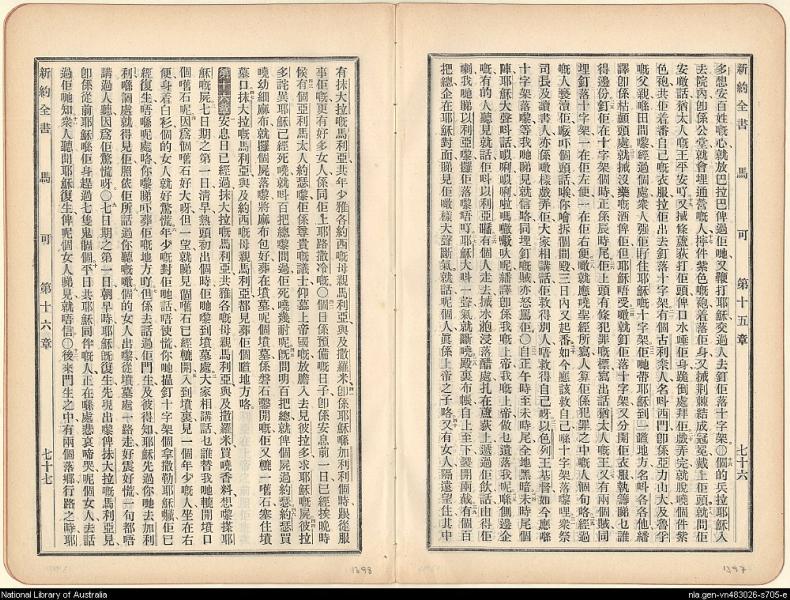 新約全書 馬可 第十五章 七十六
多想安百姓嘅心就放巴拉巴俾過佢哋又鞭打耶穌交過人去釘佢落十字架○個的兵拉耶穌入
去院內卽係公堂就會埋通營嘅人揼件紫色嘅袍着落佢身又拭荆棘結成冠冕戴上佢頭就問佢
安噉話猶太人嘅王平安吖又拭條蘆荻打佢頭俾口水唾佢身跪倒處拜佢戲弄完就脫嘵個件紫
色袍共佢着番自己嘅衣服拉佢出去釘落十字架有個古利柰人名呌西門卽係亞力山大及魯孚
嘅父親喺田間嚟經過個處衆人強佢孭住耶穌嘅十字架佢哋帶耶穌到一䠋地方名呌各各他繙
譯卽係枯髗頭處就拭沒藥嘅酒俾佢但耶穌唔受嘅就釘佢落十字架又分開佢衣服執籌睇乜誰
得邊份釘佢在十字架個時正係辰時尾佢上頭有條犯罪嘅標寫出話猶太人嘅王又有兩個賊同
埋釘落十字架一在佢左便一在佢右便噉就應曉聖經所寫人算佢係犯罪之中嘅人個句咯經過
嘅人褻瀆佢𢫦吓個頭話唉你噲拆個間殿三日內又起番如今應該救自己喺十字架落嚟埋衆祭
司長及讀書人亦係噉樣戲弄佢大家相講話佢救得別人唔救得自己呀以色列王基督如今應喺
十字架落嚟等我哋睇見就信咯同埋釘嘅賊亦怒罵佢○自正午時至未時尾全地黑暗未時尾個
陣耶穌大聲呌話
嘅有的人聽見就話佢呌以利亞
喇我哋睇以利亞嚟攞佢落嚟唔吖耶穌大呌一聲氣就斷嘵殿裏布帳自上至下裂開兩截有個百
把總企在耶穌對面睇見佢噉樣大聲斷氣就話呢個人眞係上帝之子咯又有女人隔遠望住其中
1397
有抹大拉嘅馬利亞共年少雅各約西嘅母親馬利亞與及撒羅米卽係耶穌喺加利利個時跟從服
事佢嘅更有好多女人係同佢上耶路撒冷嘅○個日係預備嘅日子卽係安息前一日已經挨晚時
候有個亞利馬太人約瑟嚟佢係尊貴嘅議士仰慕上帝國嘅放膽入去見彼拉多求耶穌嘅屍彼拉
多詫異耶穌已經死嘵就呌百把總嚟問過佢死嘵幾耐呢旣問明百把總就俾個屍過約瑟約瑟買
嘵幼細麻布就攞個屍落嚟將麻布包好葬在墳墓呢個墳墓係磐石鑿開嘅佢又轆一嚿石塞住墳
墓口抹大拉嘅馬利亞與及約西嘅母親馬利亞都見葬佢個䠋地方咯
第十六章安息日已經過抹大拉嘅馬利亞共雅各嘅母親馬利亞與及撒羅米買嘵香料想嚟搽耶
穌嘅屍七日期之第一日淸早熱頭初出個時佢哋嚟到墳墓處大家相講話乜誰替我哋轆開墳口
個嚿石呢因爲個嚿石好大呀但一望就睇見個嚿石已經轆開入到墳裏見一個年少嘅人坐在右
便身着白衫個的女人就好驚慌年少嘅對佢哋話唔使慌你哋揾釘十字架個拿撒勒耶穌嘅佢已
經復生唔喺呢處咯你嚟睇吓葬佢嘅地方吖但係去話過佢門生及彼得知耶穌先過你哋去加利
利喺個處就得見佢照依佢所話過你聽嘅噉個的女人出嚟從墳墓處一路走好震好慌一句都唔
講過人聽因爲佢驚慌呀○七日期之第一日朝早時耶穌嘅復生先現出嚟俾抹大拉嘅馬利亞見
卽係從前耶穌喺佢身趕過七隻鬼個個平日共耶穌同伴嘅人正在喺處悲哀啼哭呢個女人去話
過佢哋知衆人聽聞耶穌復生俾呢個女人睇見就唔信○後來門生之中有兩個落鄉行路之時耶
新約全書 馬可 第十六章 七十七
1398
National Library of Australia
nla.gen-vn483026-s705-e